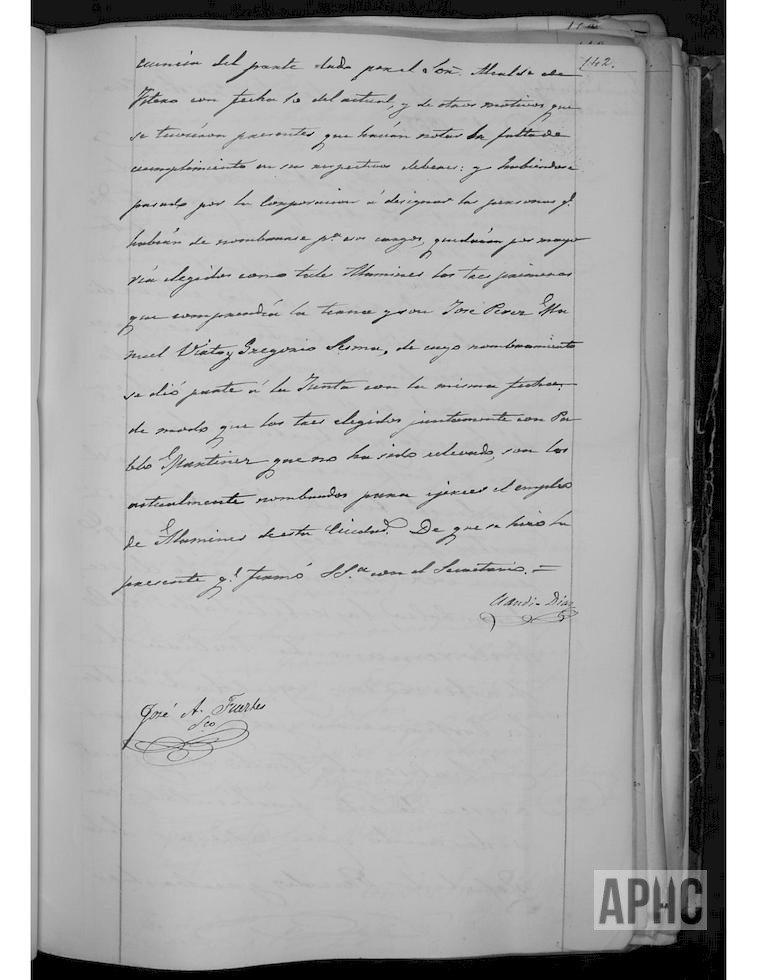 142.
cuencia del parte dado por el Señ. Alcalde de
Fitero con fecha 10 del actual, y de otros motivos que
se tuvieron presentes que hacian notar la falta de
cumplimiento en sus respectivos deberes: y habiendose
pasado por la Corporacion á designar las personas q.e
habián de nombrarse p.a esos cargos, quedaron por mayo
ría elegidos como tale Alamines los tres primeros
que comprendía la terna y son José Perez Ma
nuel Virto y Gregorio Sesma, de cuyo nombramiento
se dió parte á la Junta con la misma fecha,
de modo que los tres elegidos juntamente con Pa
blo Martinez que no ha sido relevado, son los
actualmente nombrados para ejercer el empleo
de Alamines de esta Ciudad. De que se hizo la
presente q.e firmó S.Sa. con el Secretario. =
Claudio Diaz
José A. Fuertes
Sco
APHC